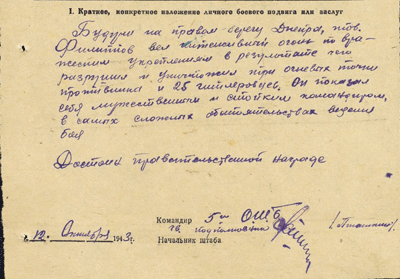 I. Краткое, конкретное изложение личного боевого подвига или заслуг
Будучи на правом берегу Днепра, тов.
Филиппов вел интенсивный огонь по вра-
жеским укреплениям в результате чего
разрушил и уничтожил три огневые точки
противника и 25 гитлеровцев. Он показал
себя мужественным и стойким командиром,
в самых сложных обстоятельствах ведения
боя
Достоин правительственной награде
Командир 5й ОШБ
гв. подполковник
Начальник штаба
"12" Октября 1943 г.